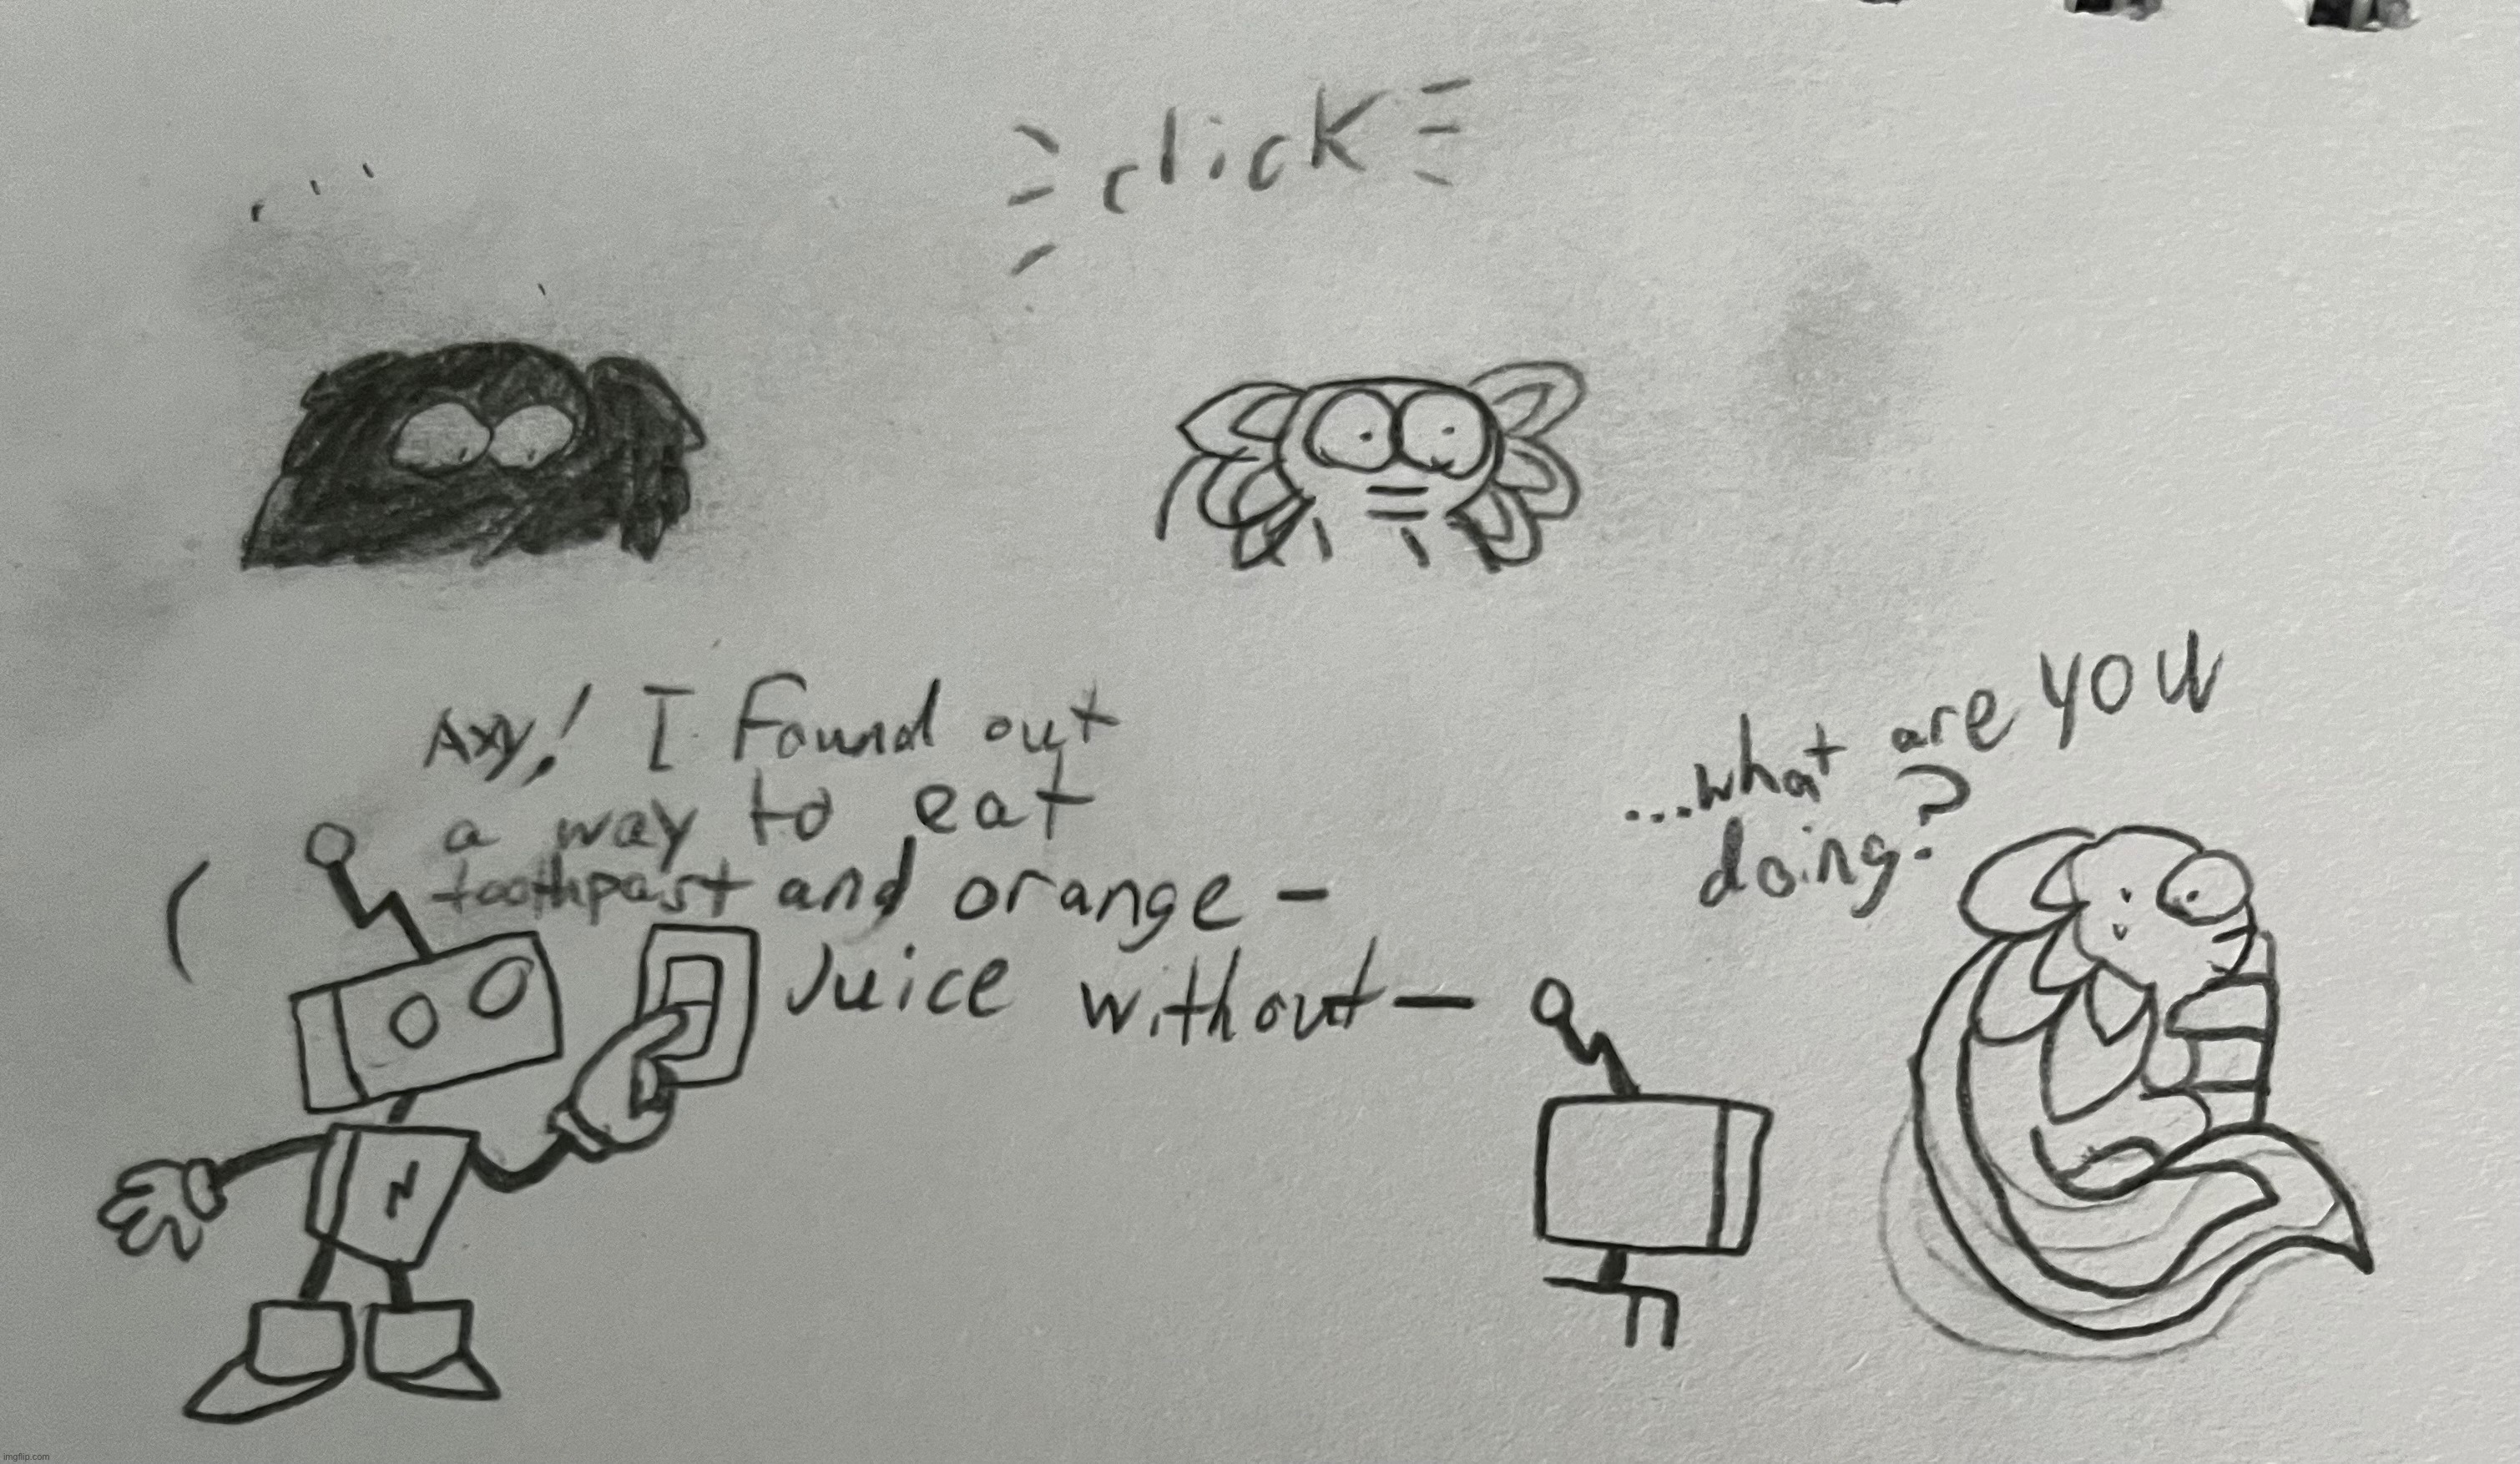 click
Axy! I Found out
a way to eat
toothpast and orange -
Juice without -
...what are you
doing?
N
imgflip.com